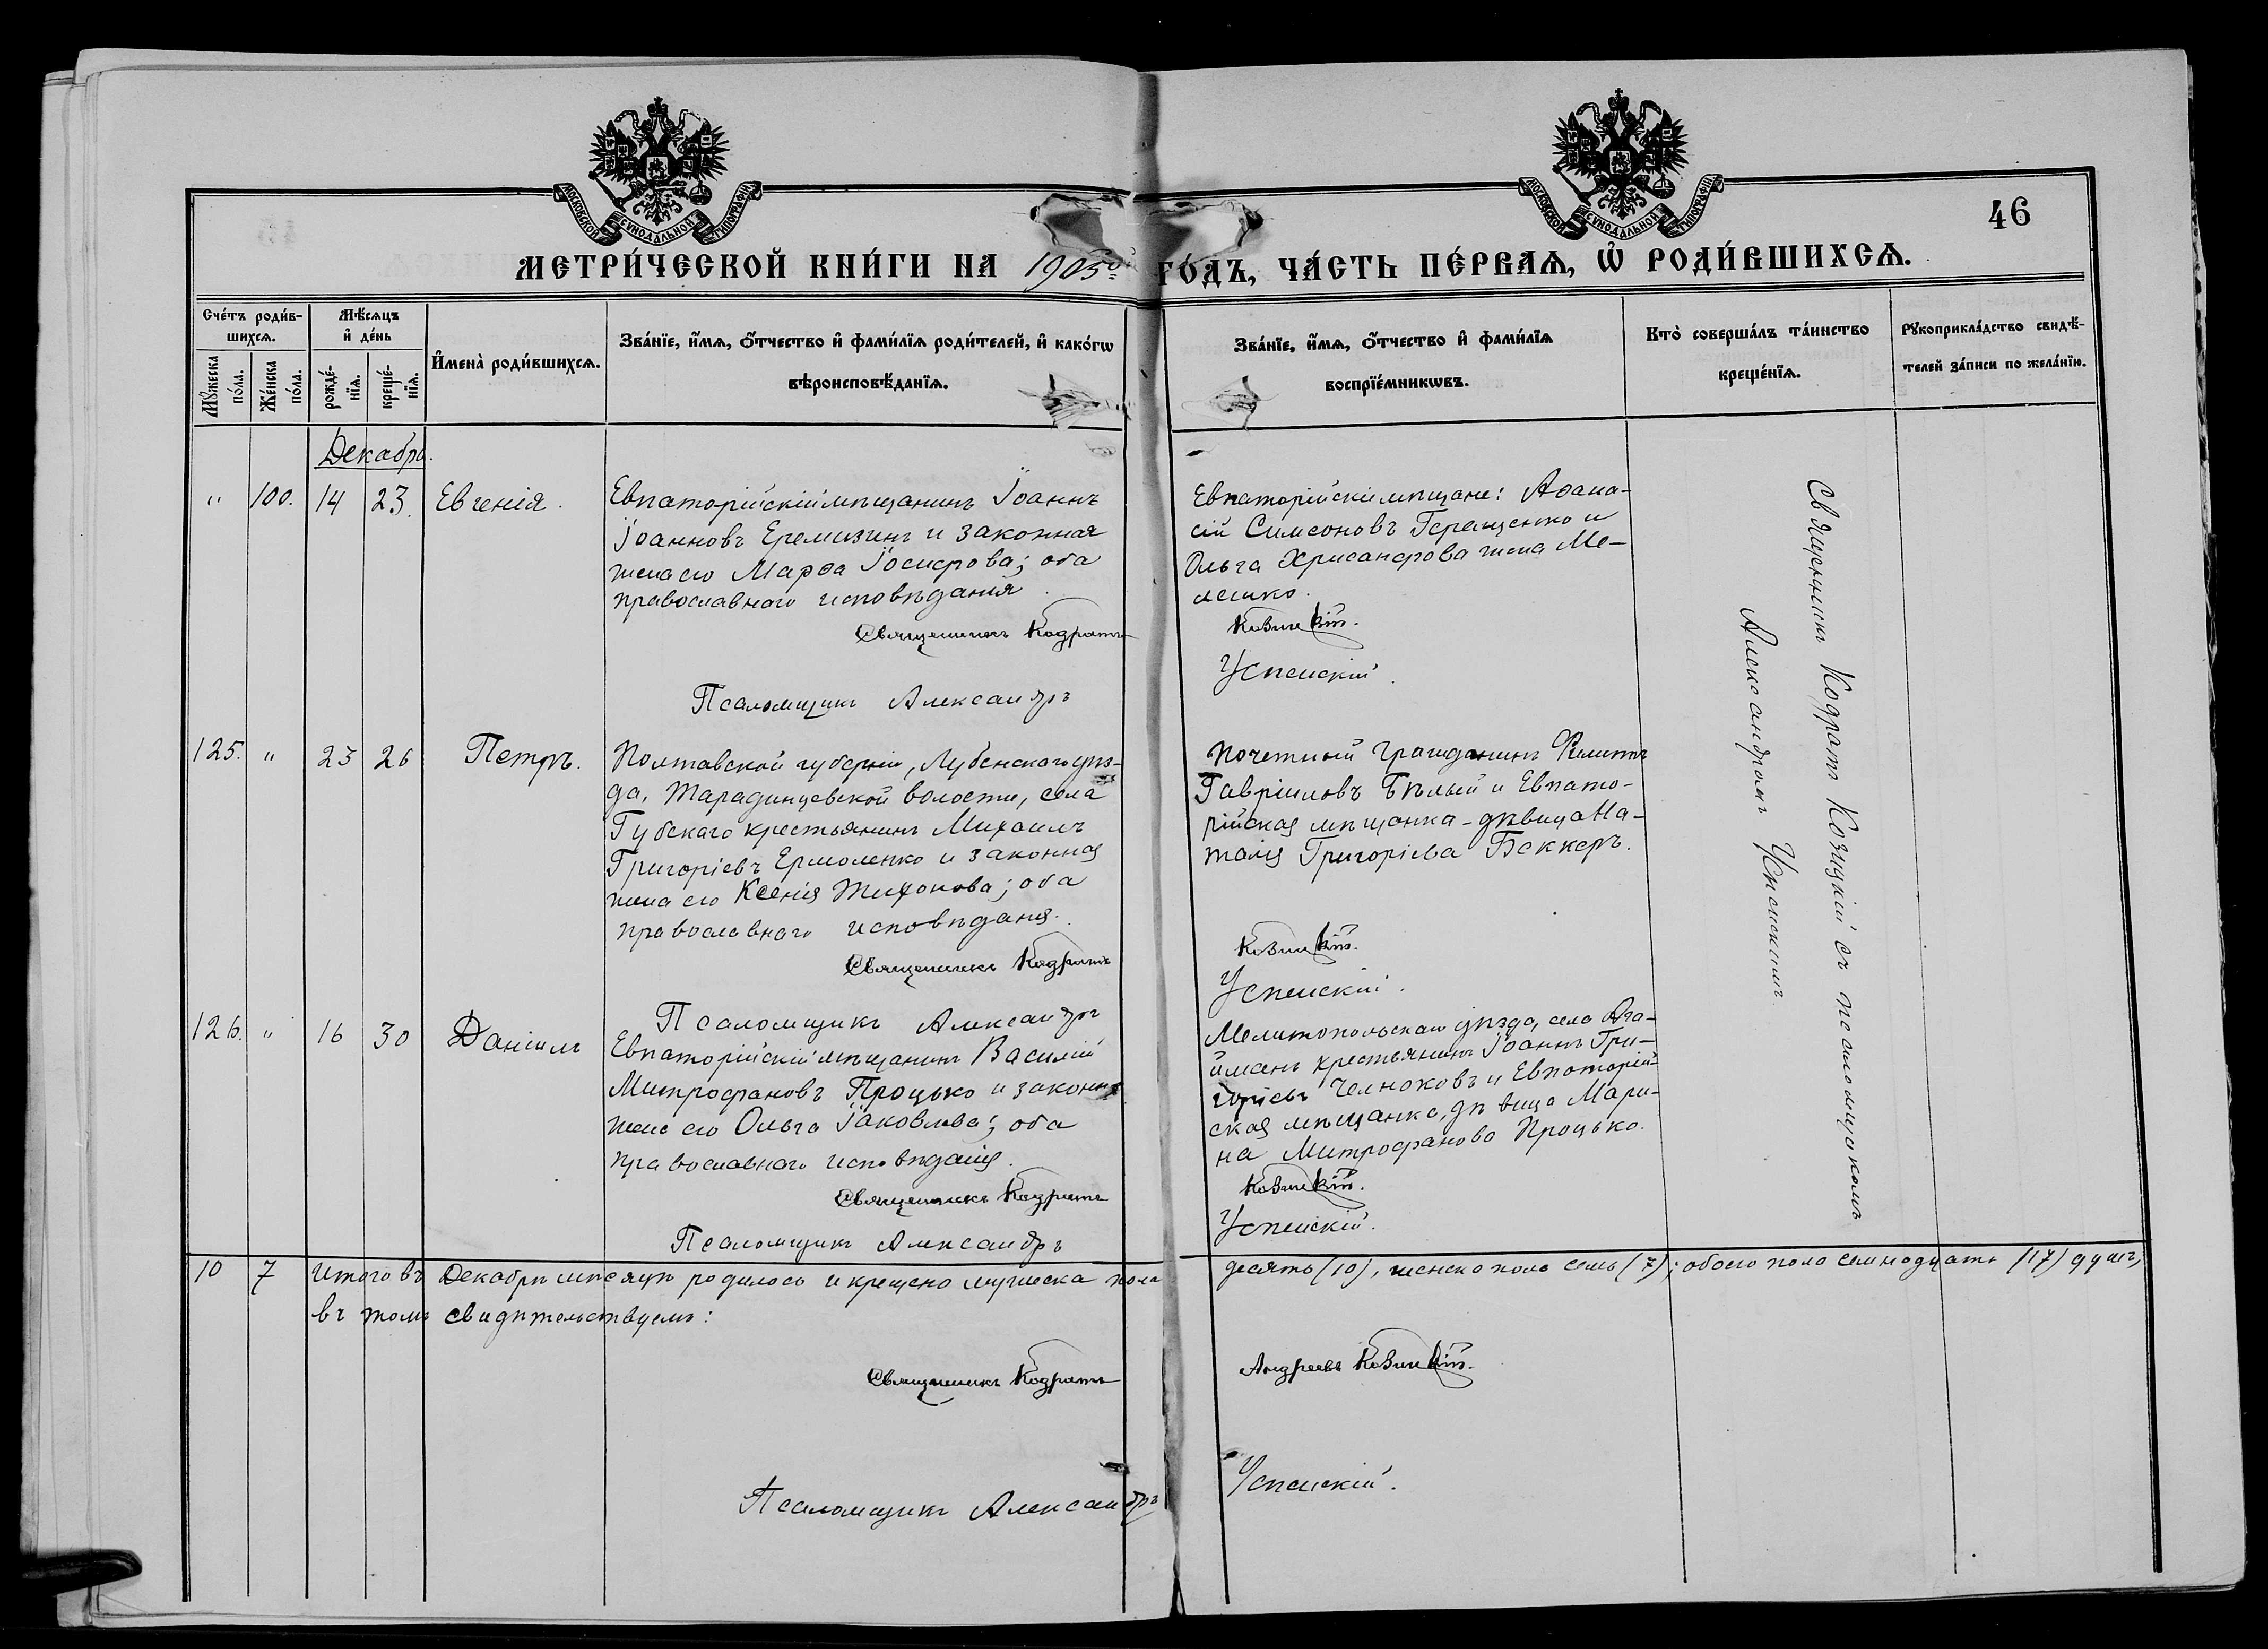 МОСКОВСКОЙ СУНОДАЛЬНОЙ ТИПОГРАФІИ
МОСКОВСКОЙ СУНОДАЛЬНОЙ ТИПОГРАФІИ
46
МЕТРИ́ЧЕСКОЙ КНИ́ГИ НА 1905й ГО́ДЪ, ЧА́СТЬ ПЕ́РВАѦ, Ѡ҆ РОДИ́ВШИХСѦ.
Сче́тъ роди́в-
шихсѧ.
Мꙋ́жеска по́ла.
Же́нска по́ла.
Мѣ́сѧцъ
и҆ де́нь
рожде́-
нїѧ.
креще́-
нїѧ.
И҆мена̀ роди́вшихсѧ.
Зва́нїе, и҆́мѧ, ѻ҆́тчество и҆ фами́лїѧ роди́телей, и҆ како́гѡ
вѣроисповѣ́данїѧ.
Зва́нїе, и҆́мѧ, ѻ҆́тчество и҆ фами́лїѧ
воспрїе́мникѡвъ.
Кто̀ соверша́лъ та́инство
креще́нїѧ.
Рꙋкоприкла́дство свидѣ́-
телей за́писи по жела́нїю.
Декабрь.
" 100. 14 23. Евгенія.
Евпаторійскій мѣщанинъ Іоаннъ
Іоанновъ Еремизинъ и законная
жена его Марѳа Іосифова; оба
православнаго исповѣданія.
Священникъ Кодратъ
Псаломщикъ Александръ
Евпаторійскіе мѣщане: Аѳана-
сій Симеоновъ Геращенко и
Ольга Хрисанфова жена Ме-
лешко.
Козицкій.
Успенскій.
125. " 23 26 Петръ.
Полтавской губерніи, Лубенскаго уѣз-
да, Тарадинцевской волости, села
Губскаго крестьянинъ Михаилъ
Григоріевъ Ермоленко и законная
жена его Ксенія Тихонова; оба
православнаго исповѣданія.
Священникъ Кодратъ
Псаломщикъ Александръ
Почетный гражданинъ Филиппъ
Гавріиловъ Бѣлый и Евпато-
рійская мѣщанка - дѣвица На-
талія Григоріева Беккеръ.
Козицкій.
Успенскій.
126. " 16 30 Даніилъ
Евпаторійскій мѣщанинъ Василій
Митрофановъ Процько и законная
жена его Ольга Іаковлева; оба
православнаго исповѣданія.
Священникъ Кодратъ
Псаломщикъ Александръ
Мелитопольскаго уѣзда, села Ага-
йманъ крестьянинъ Іоаннъ Гри-
горіевъ Челноковъ и Евпаторій-
ская мѣщанка, дѣвица Мари-
на Митрофанова Процько.
Козицкій.
Успенскій.
Священникъ Кодратъ Козицкій съ псаломщикомъ
Александромъ Успенскимъ
10 7 Итого въ Декабрѣ мѣсяцѣ родилось и крещено мужеска пола десять (10), женска пола семь (7); обоего пола семнадцать (17) душъ,
въ томъ свидѣтельствуемъ:
Священникъ Кодратъ Андреевъ Козицкій.
Псаломщикъ Александръ Успенскій.